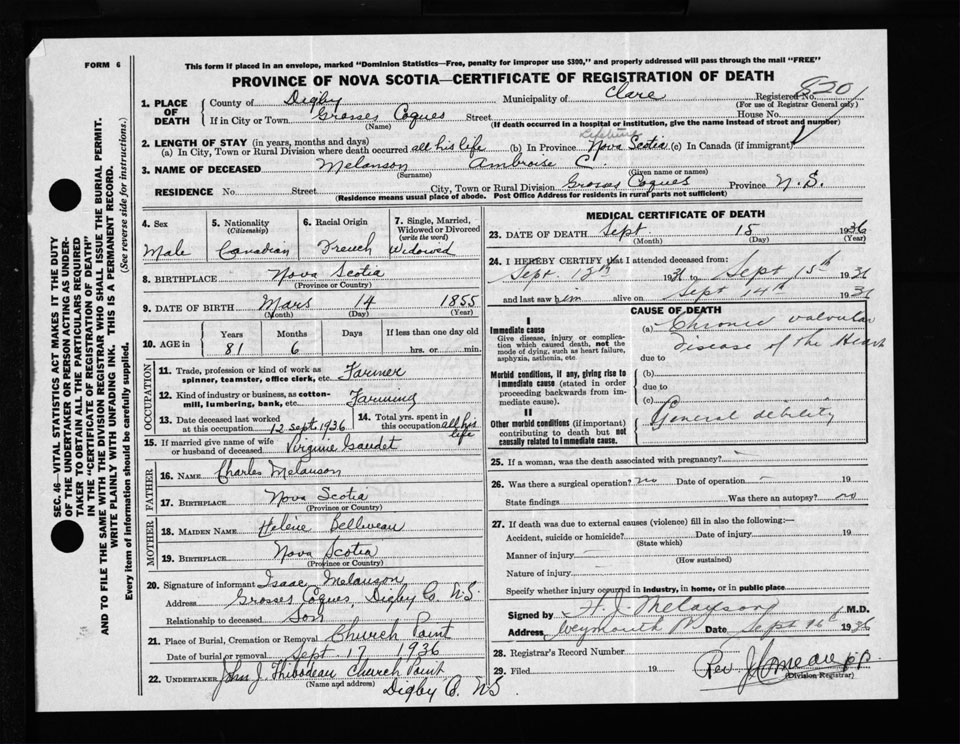 FORM 6
This form if placed in an envelope, marked "Dominion Statistics—Free, penalty for improper use $300," and properly addressed will pass through the mail "FREE"
PROVINCE OF NOVA SCOTIA—CERTIFICATE OF REGISTRATION OF DEATH
SEC. 46—VITAL STATISTICS ACT MAKES IT THE DUTY
OF THE UNDERTAKER OR PERSON ACTING AS UNDER-
TAKER TO OBTAIN ALL THE PARTICULARS REQUIRED
IN THE "CERTIFICATE OF REGISTRATION OF DEATH"
AND TO FILE THE SAME WITH THE DIVISION REGISTRAR WHO SHALL ISSUE THE BURIAL PERMIT.
WRITE PLAINLY WITH UNFADING INK. THIS IS A PERMANENT RECORD.
Every item of information should be carefully supplied. (See reverse side for instructions.)
1. PLACE OF DEATH County of Digby Municipality of Clare Registered No. 820
(For use of Registrar General only)
If in City or Town Grosses Coques Street House No.
(Name) (If death occurred in a hospital or institution, give the name instead of street and number)
2. LENGTH OF STAY (in years, months and days) Lifetime
(a) In City, Town or Rural Division where death occurred all his life (b) In Province Nova Scotia (c) In Canada (if immigrant)
3. NAME OF DECEASED Melanson Ambroise C.
(Surname) (Given name or names)
RESIDENCE No. Street City, Town or Rural Division Grosses Coques Province N.S.
(Residence means usual place of abode. Post Office Address for residents in rural parts not sufficient)
4. Sex Male
5. Nationality (Citizenship) Canadian
6. Racial Origin French
7. Single, Married, Widowed or Divorced (write the word) Widowed
8. BIRTHPLACE Nova Scotia
(Province or Country)
9. DATE OF BIRTH Mars 14 1855
(Month) (Day) (Year)
10. AGE in Years 81 Months 6 Days If less than one day old hrs. or min.
OCCUPATION
11. Trade, profession or kind of work as spinner, teamster, office clerk, etc. Farmer
12. Kind of industry or business, as cotton-mill, lumbering, bank, etc. Farming
13. Date deceased last worked at this occupation 12 Sept 1936
14. Total yrs. spent in this occupation all his life
15. If married give name of wife or husband of deceased Virginie Gaudet
FATHER
16. NAME Charles Melanson
17. BIRTHPLACE Nova Scotia
(Province or Country)
MOTHER
18. MAIDEN NAME Helene Belliveau
19. BIRTHPLACE Nova Scotia
(Province or Country)
20. Signature of informant Isaac Melanson
Address Grosses Coques, Digby Co. N.S.
Relationship to deceased Son
21. Place of Burial, Cremation or Removal Church Point
Date of burial or removal Sept 17 1936
22. UNDERTAKER John J. Thibodeau Church Point
(Name and address) Digby Co. N.S.
MEDICAL CERTIFICATE OF DEATH
23. DATE OF DEATH Sept. 15 1936
(Month) (Day) (Year)
24. I HEREBY CERTIFY that I attended deceased from:
Sept. 12th 1936 to Sept 15th 1936
and last saw him alive on Sept 14th 1936
CAUSE OF DEATH
I
Immediate cause
Give disease, injury or complica-
tion which caused death, not the
mode of dying, such as heart failure,
asphyxia, asthenia, etc.
(a) Chronic valvular
Disease of the Heart
due to
Morbid conditions, if any, giving rise to
immediate cause (stated in order
proceeding backwards from im-
mediate cause).
(b)
due to
(c)
II
Other morbid conditions (if important)
contributing to death but not
causally related to immediate cause.
General debility
25. If a woman, was the death associated with pregnancy? -
26. Was there a surgical operation? no Date of operation - 19
State findings Was there an autopsy? no
27. If death was due to external causes (violence) fill in also the following:—
Accident, suicide or homicide? Date of injury 19
(State which)
Manner of injury
(How sustained)
Nature of injury
Specify whether injury occurred in industry, in home, or in public place
Signed by H. J. Melanson M.D.
Address Weymouth Date Sept 16th 1936
28. Registrar's Record Number
29. Filed 19 Rev. J. Comeau pp
(Division Registrar)